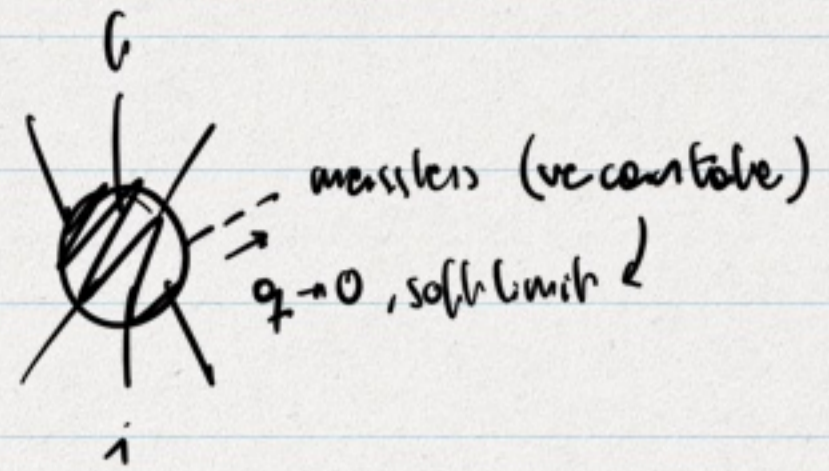 massless (we can take)
q → 0, soft limit
i